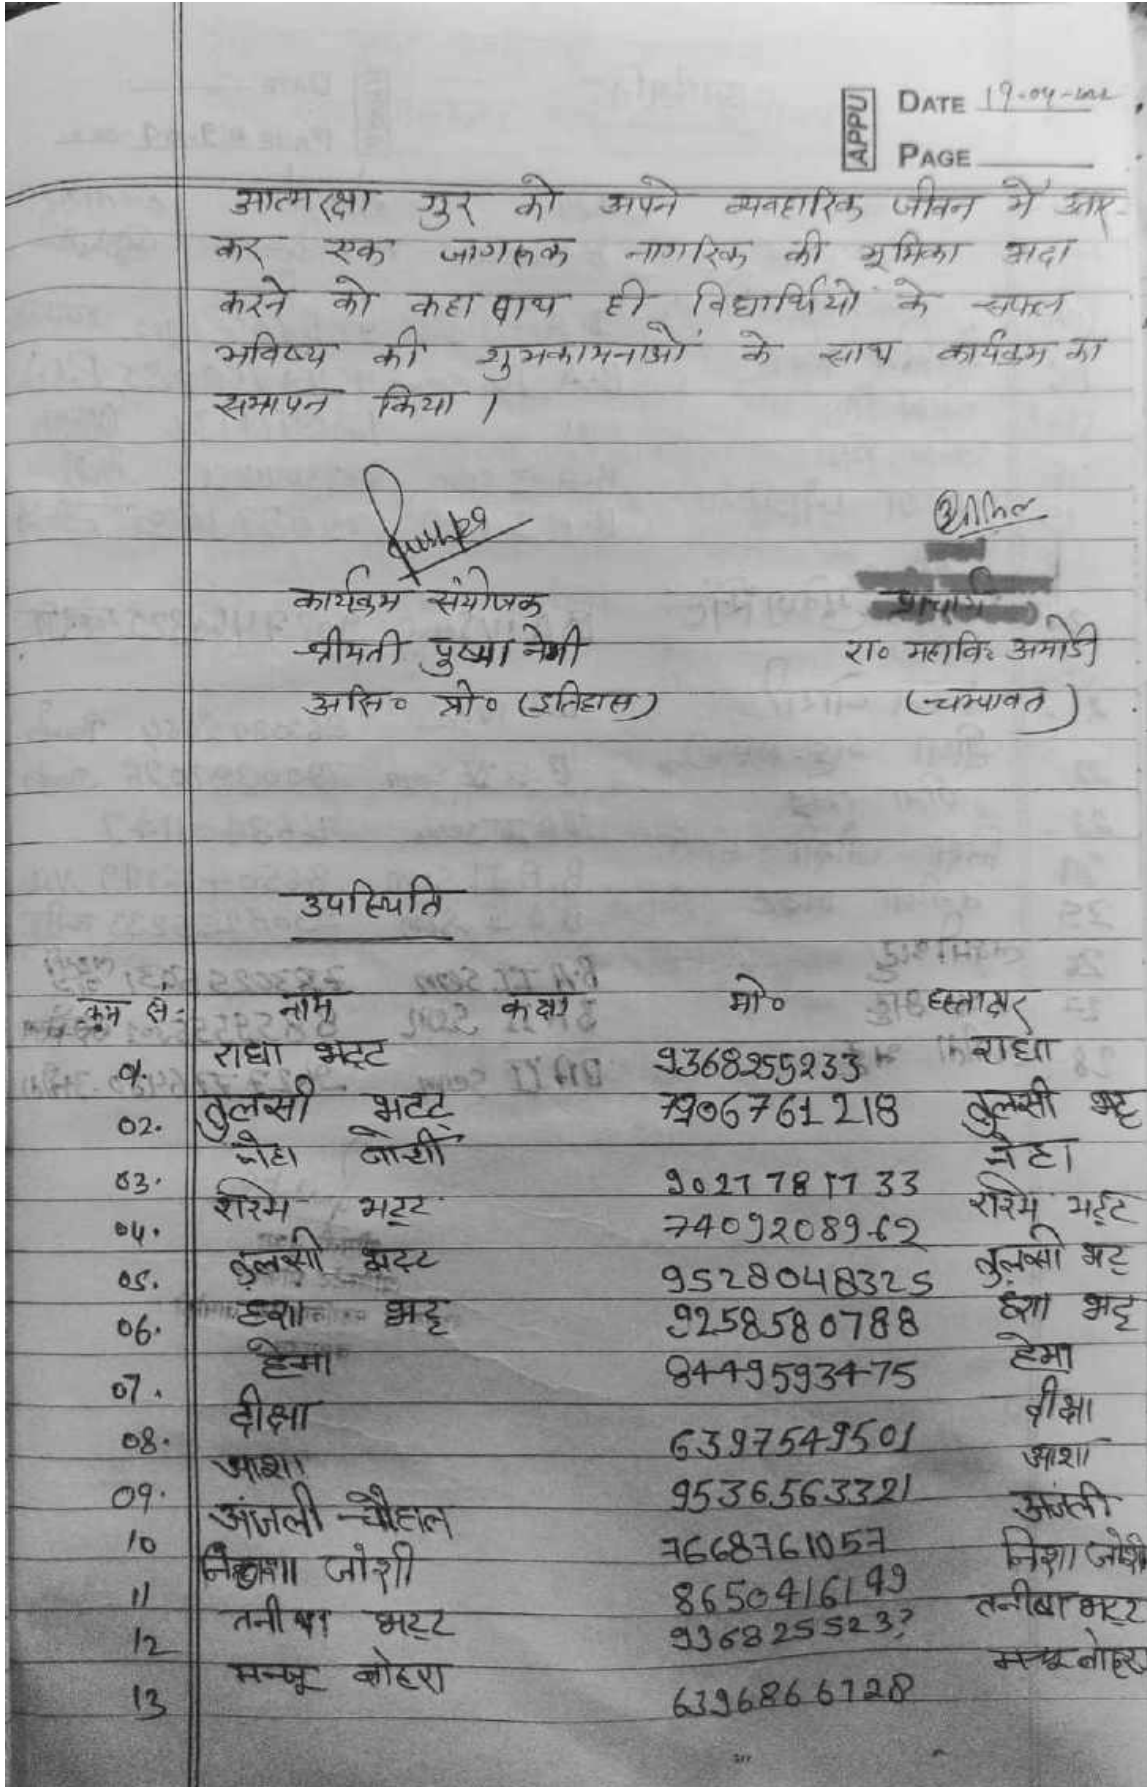 APPU
DATE 19-04-2022
PAGE
आत्मरक्षा गुर को अपने व्यवहारिक जीवन में उतार-
कर एक जागरूक नागरिक की भूमिका अदा
करने को कहा साथ ही विद्यार्थियों के सफल
भविष्य की शुभकामनाओं के साथ कार्यक्रम का
समापन किया।
Pushpa
कार्यक्रम संयोजक प्राचार्य
श्रीमती पुष्पा रा० महावि० अमोडी
असि० प्रो० (इतिहास) (चम्पावत)
उपस्थिति
क्रम सं. नाम कक्षा मो० हस्ताक्षर
01. राधा भट्ट 9368255233 राधा
02. तुलसी भटट् 7906761218 तुलसी भट्ट
03. नेहा जोशी 9027781733 नेहा
04. रश्मि भट्ट 7409208962 रश्मि भर्ट्ट
05. तुलसी भट्ट 9528048325 तुलसी भट्ट
06. भट्ट 9258580788 भट्ट
07. हेमा 8449593475 हेमा
08. दीक्षा 6397549501 दीक्षा
09. आशा 9536563321 आशा
10 अंजली चौहान 7668761057 अंजली
11 जोशी 8650416149 निशा जोशी
12 तनीषा भट्ट तनीषा भट्ट
13 मन्जू बोहरा 6396866728 मन्जू बोहरा